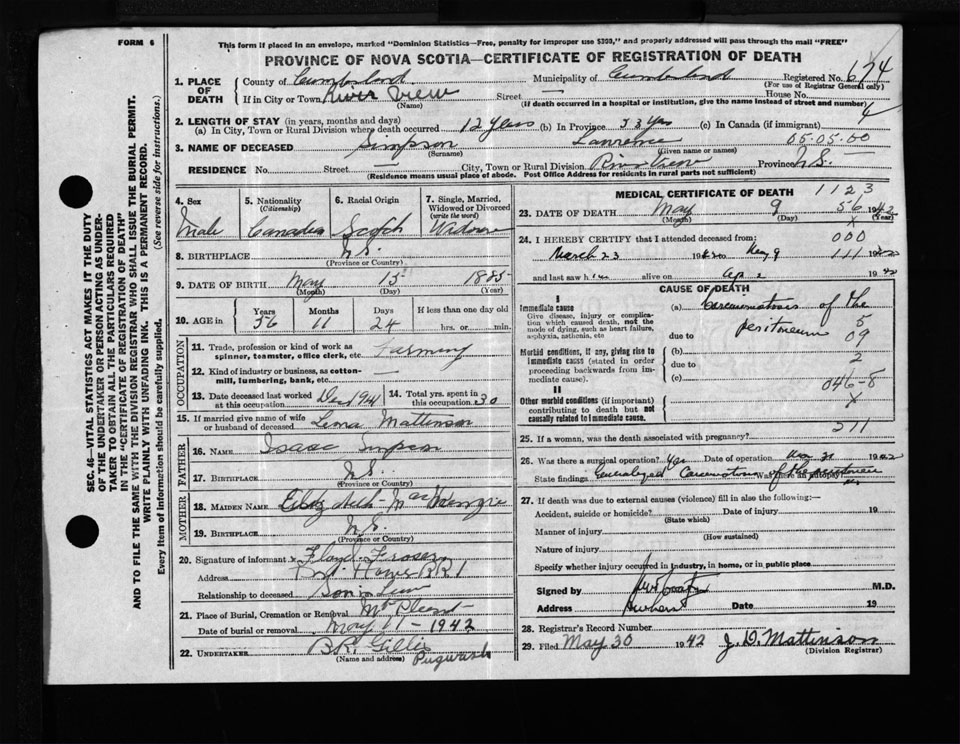 FORM 6
This form if placed in an envelope, marked "Dominion Statistics—Free, penalty for improper use $300," and properly addressed will pass through the mail "FREE"
PROVINCE OF NOVA SCOTIA—CERTIFICATE OF REGISTRATION OF DEATH
1. PLACE OF DEATH
County of Cumberland Municipality of Cumberland Registered No. 674
(For use of Registrar General only)
If in City or Town River View Street — House No.
(Name) (If death occurred in a hospital or institution, give the name instead of street and number)
4
2. LENGTH OF STAY (in years, months and days)
(a) In City, Town or Rural Division where death occurred 12 years (b) In Province 53 yrs (c) In Canada (if immigrant)
3. NAME OF DECEASED Simpson Lawrence 05.05.00
(Surname) (Given name or names)
RESIDENCE No. Street City, Town or Rural Division River View Province N.S.
(Residence means usual place of abode. Post Office Address for residents in rural parts not sufficient)
4. Sex
Male
5. Nationality (Citizenship)
Canadian
6. Racial Origin
Scotch
7. Single, Married, Widowed or Divorced (write the word)
Widower
8. BIRTHPLACE N.S.
(Province or Country)
9. DATE OF BIRTH May 15 1885
(Month) (Day) (Year)
10. AGE in Years Months Days If less than one day old
56 11 24 hrs. or min.
OCCUPATION
11. Trade, profession or kind of work as spinner, teamster, office clerk, etc. Farming
12. Kind of industry or business, as cotton-mill, lumbering, bank, etc. —
13. Date deceased last worked at this occupation Dec 1941
14. Total yrs. spent in this occupation 30
15. If married give name of wife or husband of deceased Leona Mattinson
FATHER
16. NAME Isaac Simpson
17. BIRTHPLACE N.S.
(Province or Country)
MOTHER
18. MAIDEN NAME Elizabeth MacKenzie
19. BIRTHPLACE N.S.
(Province or Country)
20. Signature of informant Floyd Fraser
Address Home RR1
Relationship to deceased Son in law
21. Place of Burial, Cremation or Removal Mt Pleasant
Date of burial or removal May 11 - 1942
22. UNDERTAKER B.R. Gillis Pugwash
(Name and address)
MEDICAL CERTIFICATE OF DEATH 1123
23. DATE OF DEATH May 9 56 1942
(Month) (Day) (Year)
x
24. I HEREBY CERTIFY that I attended deceased from: 000
March 23 1942 to May 9 111 1942
and last saw him alive on Apr 2 1942
CAUSE OF DEATH
I
Immediate cause
Give disease, injury or complication which caused death, not the mode of dying, such as heart failure, asphyxia, asthenia, etc
(a) Carcinomatosis of the
peritoneum 5
due to 09
Morbid conditions, if any, giving rise to immediate cause (stated in order proceeding backwards from immediate cause).
(b)
due to 2
(c)
046-8
II
Other morbid conditions (if important) contributing to death but not causally related to immediate cause.
x
211
25. If a woman, was the death associated with pregnancy?
26. Was there a surgical operation? Yes Date of operation 1942
State findings Generalized Carcinoma of the peritoneum Was there an autopsy?
27. If death was due to external causes (violence) fill in also the following:—
Accident, suicide or homicide? Date of injury 19
(State which)
Manner of injury
(How sustained)
Nature of injury
Specify whether injury occurred in industry, in home, or in public place
Signed by M.D.
Address Amherst Date 19
28. Registrar's Record Number
29. Filed May 30 1942 J. D. Mattinson
(Division Registrar)
SEC. 46—VITAL STATISTICS ACT MAKES IT THE DUTY OF THE UNDERTAKER OR PERSON ACTING AS UNDERTAKER TO OBTAIN ALL THE PARTICULARS REQUIRED IN THE "CERTIFICATE OF REGISTRATION OF DEATH" AND TO FILE THE SAME WITH THE DIVISION REGISTRAR WHO SHALL ISSUE THE BURIAL PERMIT.
WRITE PLAINLY WITH UNFADING INK. THIS IS A PERMANENT RECORD.
Every item of information should be carefully supplied. (See reverse side for instructions.)